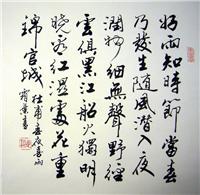 好雨知時節當春
乃發生隨風潛入夜
潤物細無聲野徑
雲俱黑江船火獨明
曉看紅濕處花重
錦官城
杜甫春夜喜雨